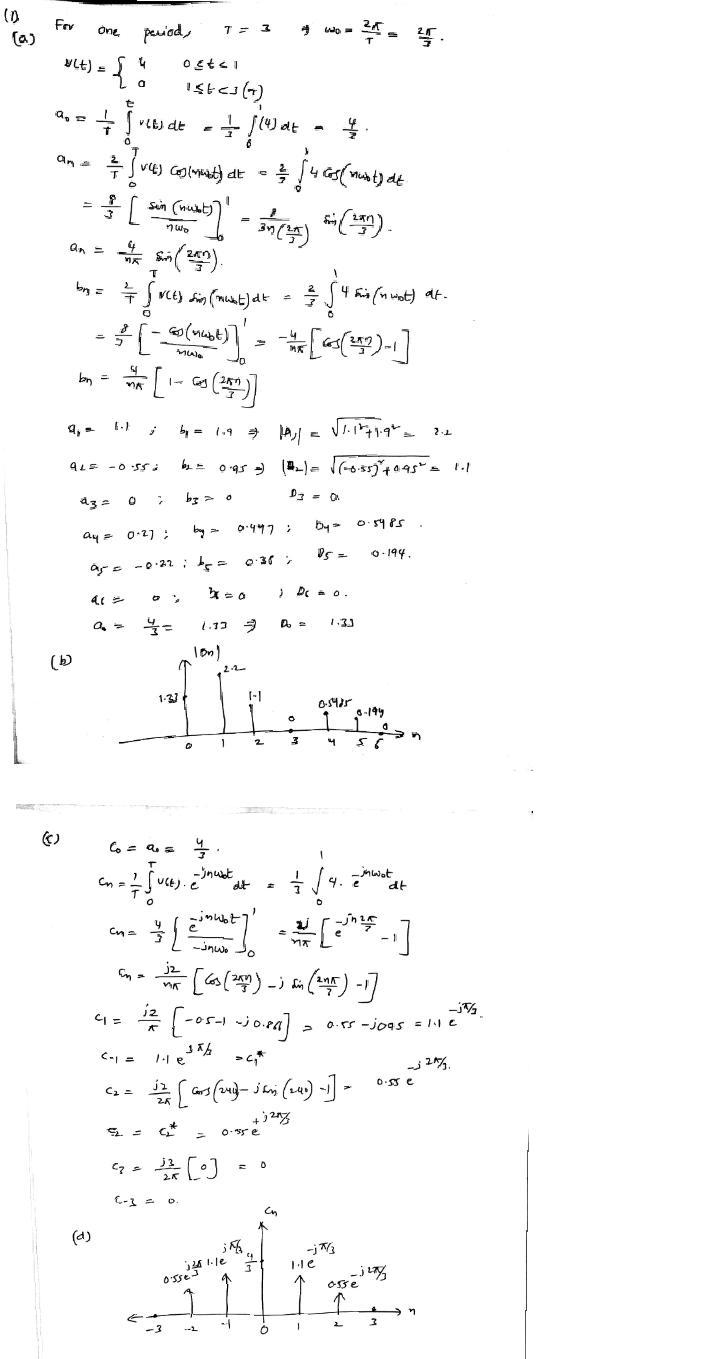 (1)
(a) For one period, T = 3 ⇒ ω₀ = 2π/T = 2π/3.
v(t) = { 4 0 ≤ t < 1
0 1 ≤ t < 3 (T)
a₀ = 1/T ∫₀ᵗ v(t) dt = 1/3 ∫₀¹ (4) dt = 4/3.
aₙ = 2/T ∫₀ᵀ v(t) cos(nω₀t) dt = 2/3 ∫₀¹ 4 cos(nω₀t) dt
= 8/3 [ sin(nω₀t) / nω₀ ]₀¹ = 8 / 3n(2π/3) sin(2πn/3).
aₙ = 4/nπ sin(2πn/3).
bₙ = 2/T ∫₀ᵀ v(t) sin(nω₀t) dt = 2/3 ∫₀¹ 4 sin(nω₀t) dt.
= 8/3 [ - cos(nω₀t) / nω₀ ]₀¹ = -4/nπ [cos(2πn/3) - 1]
bₙ = 4/nπ [1 - cos(2πn/3)]
a₁ = 1.1 ; b₁ = 1.9 ⇒ |A₁| = √1.1²+1.9² = 2.2
a₂ = -0.55 ; b₂ = 0.95 ⇒ |D₂| = √(-0.55)²+0.95² = 1.1
a₃ = 0 ; b₃ = 0 D₃ = 0.
a₄ = 0.27 ; b₄ = 0.477 ; D₄ = 0.5485.
a₅ = -0.22 ; b₅ = 0.36 ; D₅ = 0.194.
a₆ = 0 ; b₆ = 0 ; D₆ = 0.
a₀ = 4/3 = 1.33 ⇒ D₀ = 1.33
(b) |Dn|
2.2
1.33 1.1 0 0.5485 0.194 0
0 1 2 3 4 5 6 n
(c) C₀ = a₀ = 4/3.
Cₙ = 1/T ∫₀ᵀ v(t). e^(-jnω₀t) dt = 1/3 ∫₀¹ 4. e^(-jnω₀t) dt
Cₙ = 4/3 [ e^(-jnω₀t) / -jnω₀ ]₀¹ = 2j/nπ [ e^(-jn2π/3) - 1 ]
Cₙ = j2/nπ [cos(2πn/3) - j sin(2nπ/3) - 1]
C₁ = j2/π [-0.5-1 -j0.87] = 0.55 - j0.95 = 1.1 e^(-jπ/3).
C₋₁ = 1.1 e^(jπ/3) = C₁*
C₂ = j2/2π [cos(240) - j sin(240) - 1] = 0.55 e^(-j2π/3).
C₋₂ = C₂* = 0.55 e^(+j2π/3)
C₃ = j3/2π [0] = 0
C₋₃ = 0.
(d) Cn
0.55e^(j2π/3) 1.1e^(jπ/3) 4/3 1.1e^(-jπ/3) 0.55e^(-j2π/3)
-3 -2 -1 0 1 2 3 n